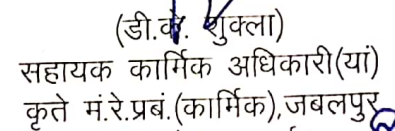 (डी.के. शुक्ला)
सहायक कार्मिक अधिकारी(यां)
कृते मं.रे.प्रबं.(कार्मिक),जबलपुर